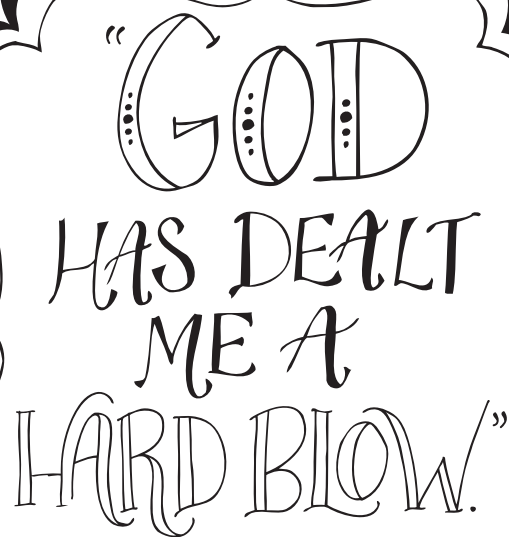 “GOD
HAS DEALT
ME A
HARD BLOW.”